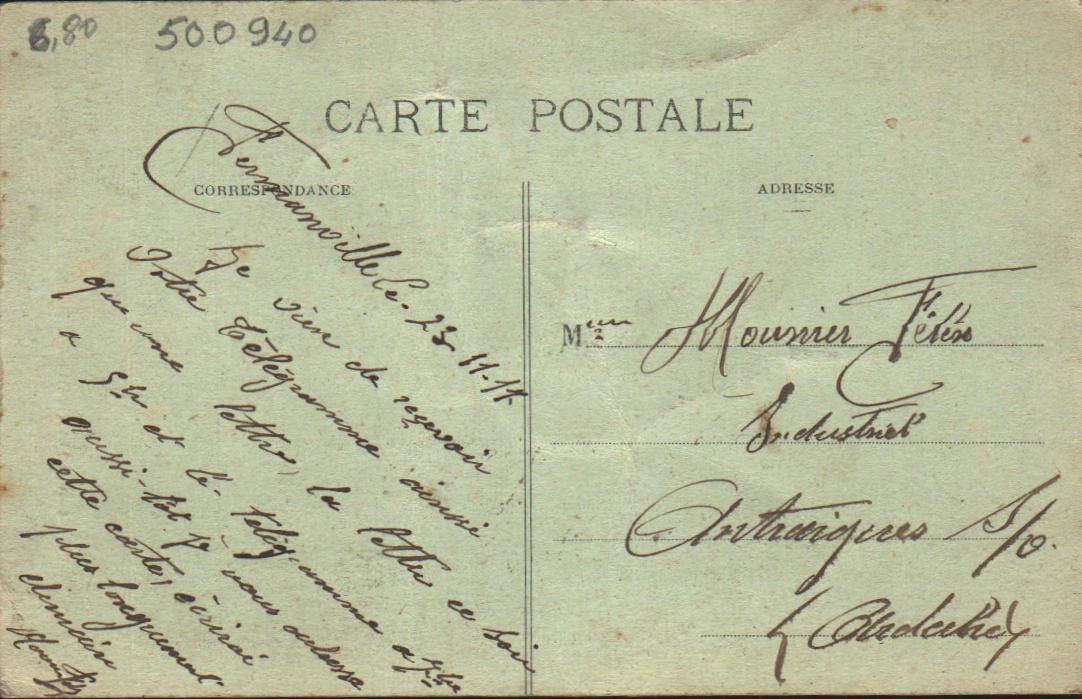 6,80 500940
CARTE POSTALE
CORRESPONDANCE
ADRESSE
Fermanville le 23-11-11
Je vien de reçevoir
votre Télégramme ainsi
que une lettre, la lettre ce soir
a 5h et le télégramme a 7h
aussi-tôt je vous adresse
cette carte, écrirai
plus longuement
dimain
M Mounier Félix
Industriel
Antraigues S/o.
Ardèche